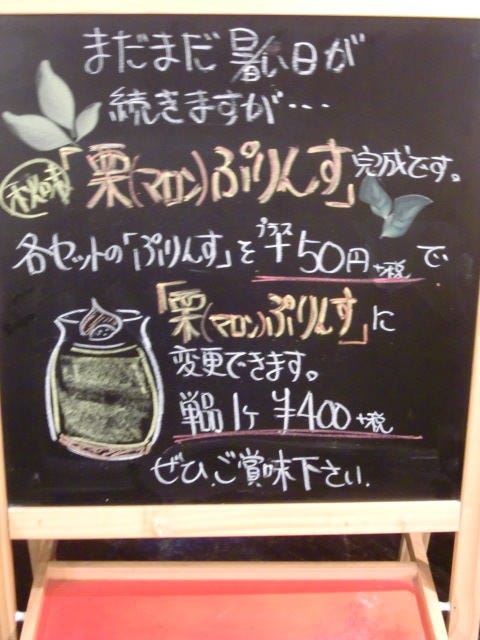 まだまだ暑い日が
続きますが・・・
秋の味「栗(マロン)ぷりんす」完成です。
各セットの「ぷりんす」をプラス¥50円+税で
「栗(マロン)ぷりんす」に
変更できます。
単品1ケ ¥400+税
ぜひ、ご賞味下さい.